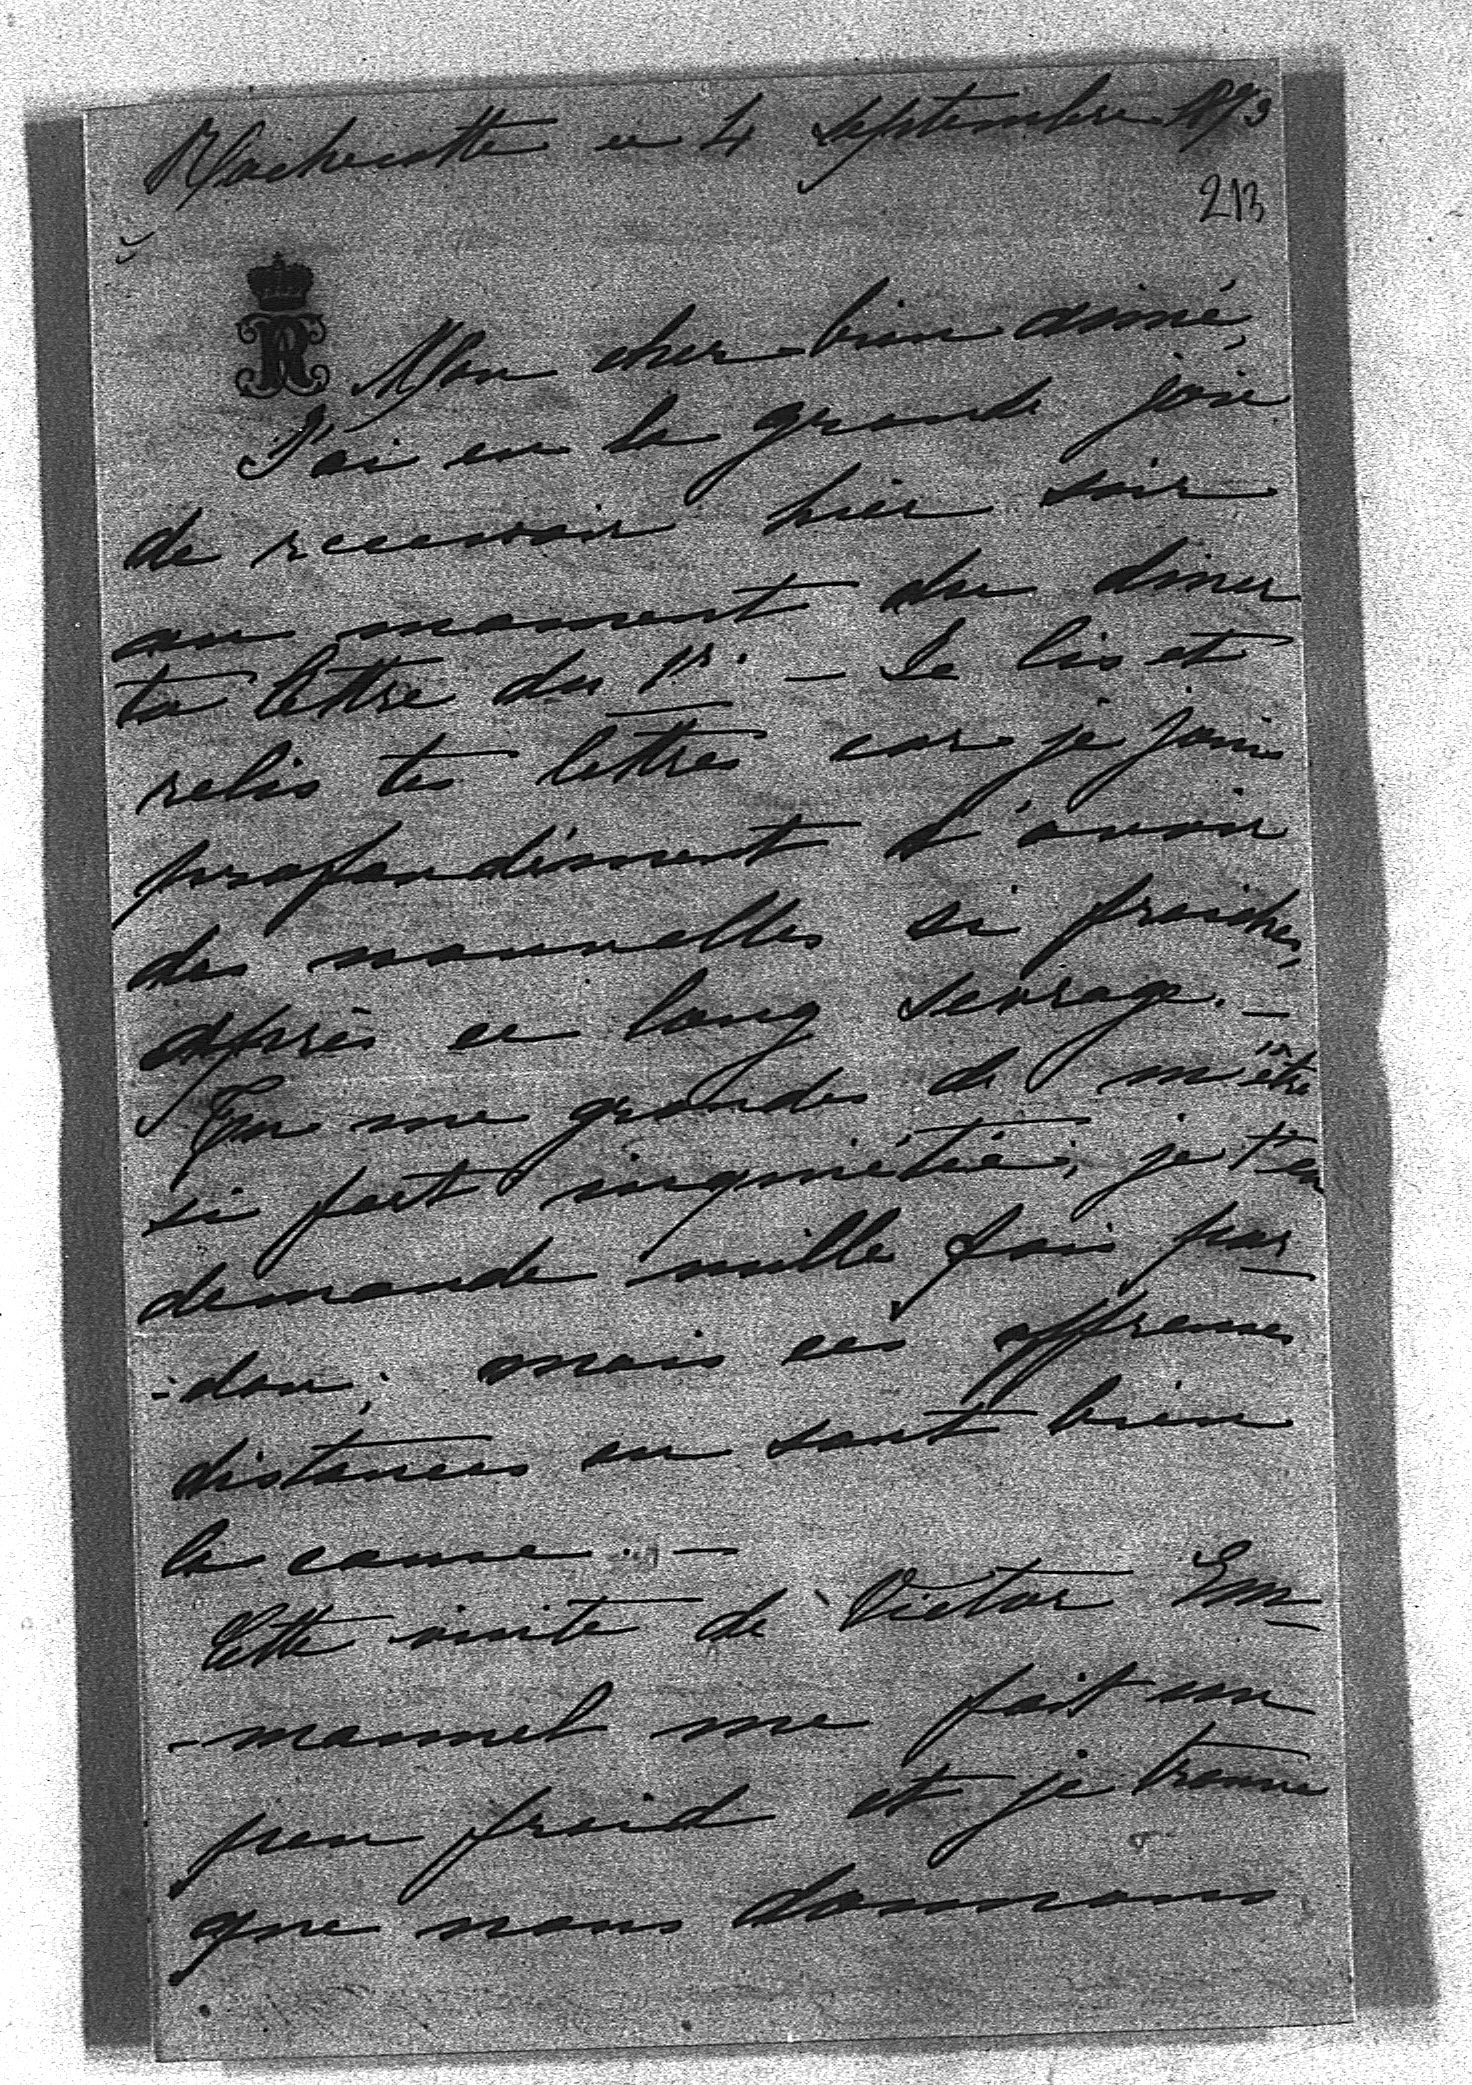 Rochecotte ce 4 Septembre 1873
213
Mon cher bien aimé,
J'ai eu la grande joie
de recevoir hier soir
au moment du diner
ta lettre du 1er. – Je lis et
relis tes lettres car je jouis
profondément d'avoir
des nouvelles si fraiches,
après ce long sevrage. –
Tu me grondes de m'être
si fort inquiétée; je t'en
demande mille fois par
-don; mais ces affreuses
distances en sont bien
la cause. –
Cette visite de Victor Em-
-manuel me fait un
peu froid et je trouve
que nous donnons